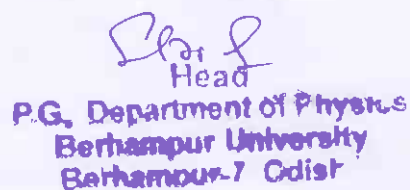 Head
P.G. Department of Physics
Berhampur University
Berhampur-7 Odish